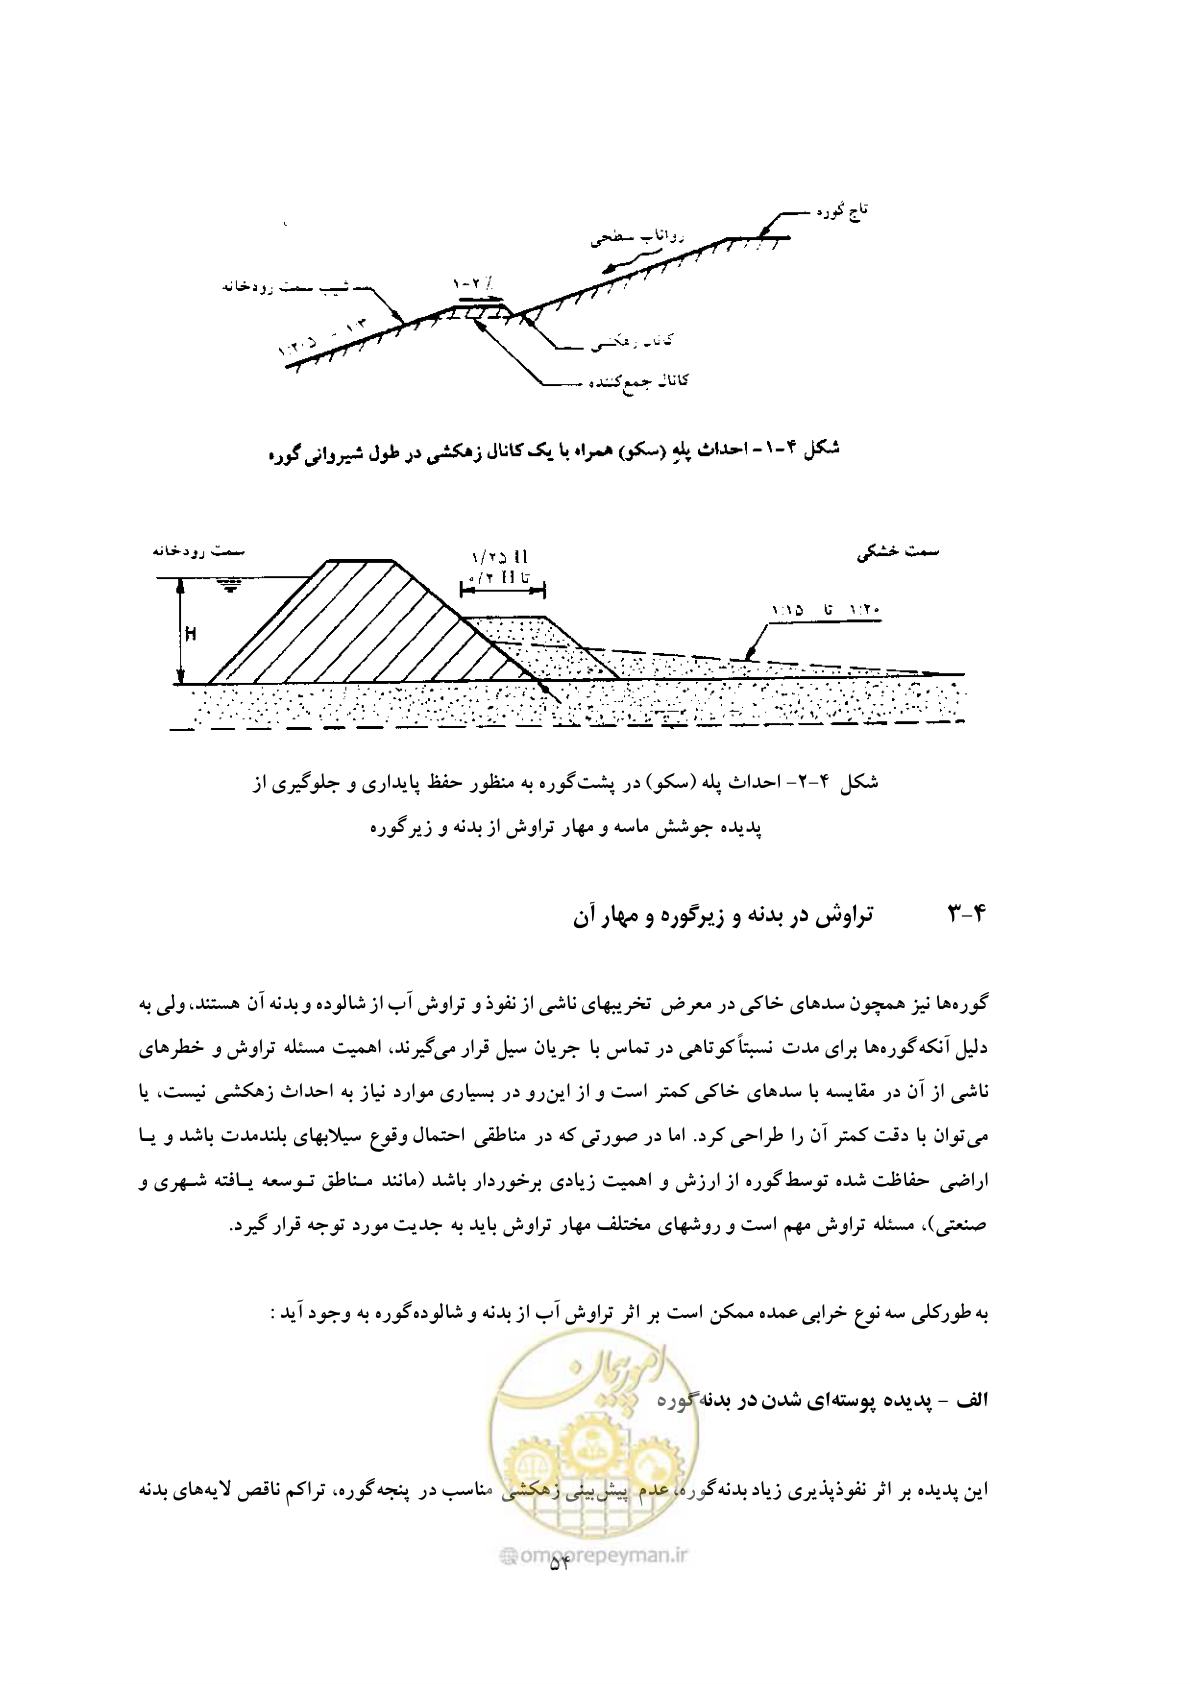 تاج گوره
رواناب سطحی
۱-۲ ٪
شیب سمت رودخانه
۱:۲۰۵ - ۱:۳
کانال زهکشی
کانال جمع‌کننده
شکل ۴-۱- احداث پله (سکو) همراه با یک کانال زهکشی در طول شیروانی گوره
سمت رودخانه
۱/۲۵ H
تا ۰/۲ H
سمت خشکی
۱:۱۵ تا ۱:۲۰
H
شکل ۴-۲- احداث پله (سکو) در پشت‌گوره به منظور حفظ پایداری و جلوگیری از
پدیده جوشش ماسه و مهار تراوش از بدنه و زیرگوره
۴-۳ تراوش در بدنه و زیرگوره و مهار آن
گوره‌ها نیز همچون سدهای خاکی در معرض تخریبهای ناشی از نفوذ و تراوش آب از شالوده و بدنه آن هستند، ولی به
دلیل آنکه گوره‌ها برای مدت نسبتاً کوتاهی در تماس با جریان سیل قرار می‌گیرند، اهمیت مسئله تراوش و خطرهای
ناشی از آن در مقایسه با سدهای خاکی کمتر است و از این‌رو در بسیاری موارد نیاز به احداث زهکشی نیست، یا
می‌توان با دقت کمتر آن را طراحی کرد. اما در صورتی که در مناطقی احتمال وقوع سیلابهای بلندمدت باشد و یـا
اراضی حفاظت شده توسط گوره از ارزش و اهمیت زیادی برخوردار باشد (مانند مـناطق تـوسعه یـافته شـهری و
صنعتی)، مسئله تراوش مهم است و روشهای مختلف مهار تراوش باید به جدیت مورد توجه قرار گیرد.
به طورکلی سه نوع خرابی عمده ممکن است بر اثر تراوش آب از بدنه و شالوده‌گوره به وجود آید :
الف - پدیده پوسته‌ای شدن در بدنه‌گوره
این پدیده بر اثر نفوذپذیری زیاد بدنه‌گوره، عدم پیش‌بینی زهکشی مناسب در پنجه‌گوره، تراکم ناقص لایه‌های بدنه
امور پیمان
@omoorepeyman.ir
۵۴